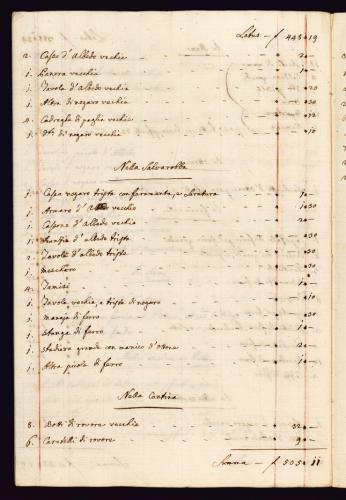 Latus - f 4450 19
2. Casse d'Albedo vechie - 20 -
1. vechia - 10 -
1. Tavola d'Albedo vechia - 020
1. Altra di nogaro vechia - 030
4. Cadreghe di paglia vechie - 012
1. Dta di nogaro vecchia - 010
Nella Salvarobba
1. Cassa nogaro trista con feramenta, e seratura - 10 -
1. Armaro d'Albedo vecchio - 030
1. Cassone d'Albedo vechio - 20 -
1. d'albedo trista - 030
2. Tavole d'albedo triste - 030
1. - 030
4. Tamisi - 10 -
1. Tavola vechia, e trista di nogaro - 010
1. di ferro - 030
1. Stanga di ferro - 10 -
1. Stadiera grande con manico d'Ottone - 20 -
1. Altra picola di ferro - 10 -
Nella Cantina
8. Botti di rovere vecchie - 320 -
6. Caratelli di rovere - 90 -
Somma - f 5050 11